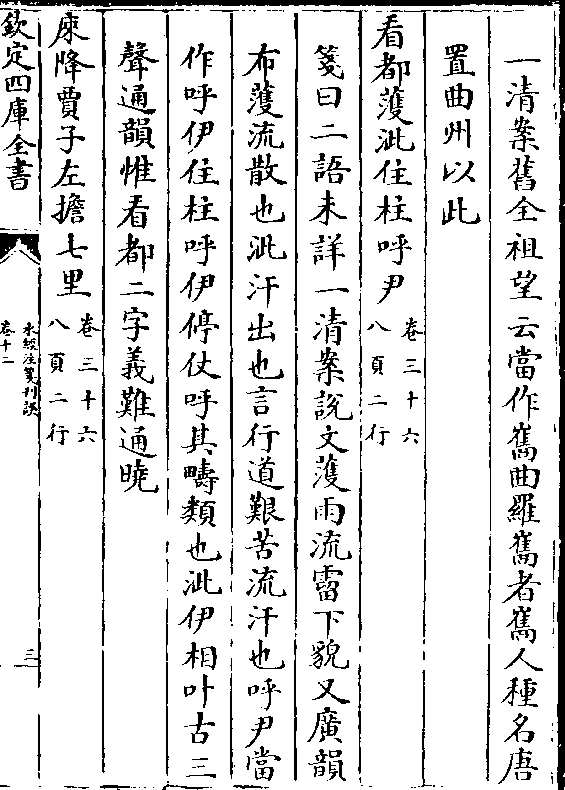 一清案舊全祖望云當作䧳曲羅䧳者䧳人種名唐
置曲州以此
看都濩泚住柱呼尹
卷三十六
八頁二行
箋曰二語未詳一清案說文濩雨流霤下貌又廣韻
布濩流散也泚汗出也言行道艱苦流汗也呼尹當
作呼伊住柱呼伊停仗呼其疇類也泚伊相叶古三
聲通韻惟看都二字義難通曉
庲降賈子左擔七里
卷三十六
八頁二行
欽定四庫全書
水經注箋刊誤
卷十二
三